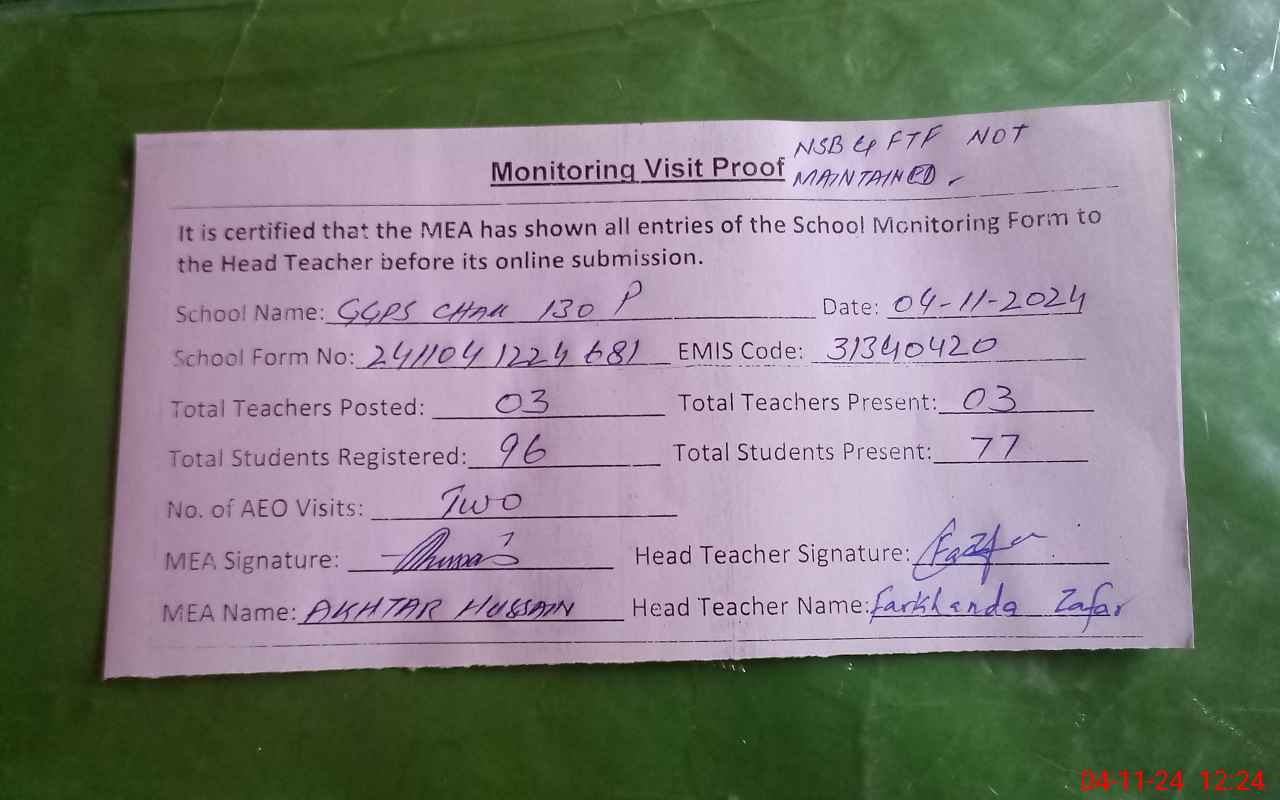 Monitoring Visit Proof NSB & FTF NOT
MAINTAINED
It is certified that the MEA has shown all entries of the School Monitoring Form to
the Head Teacher before its online submission.
School Name: GGPS CHAK 130 P Date: 04-11-2024
School Form No: 241104 1224 681 EMIS Code: 31340420
Total Teachers Posted: 03 Total Teachers Present: 03
Total Students Registered: 96 Total Students Present: 77
No. of AEO Visits: Two
MEA Signature: Head Teacher Signature:
MEA Name: AKHTAR HUSSAIN Head Teacher Name: Farkhanda Zafar
04-11-24 12:24